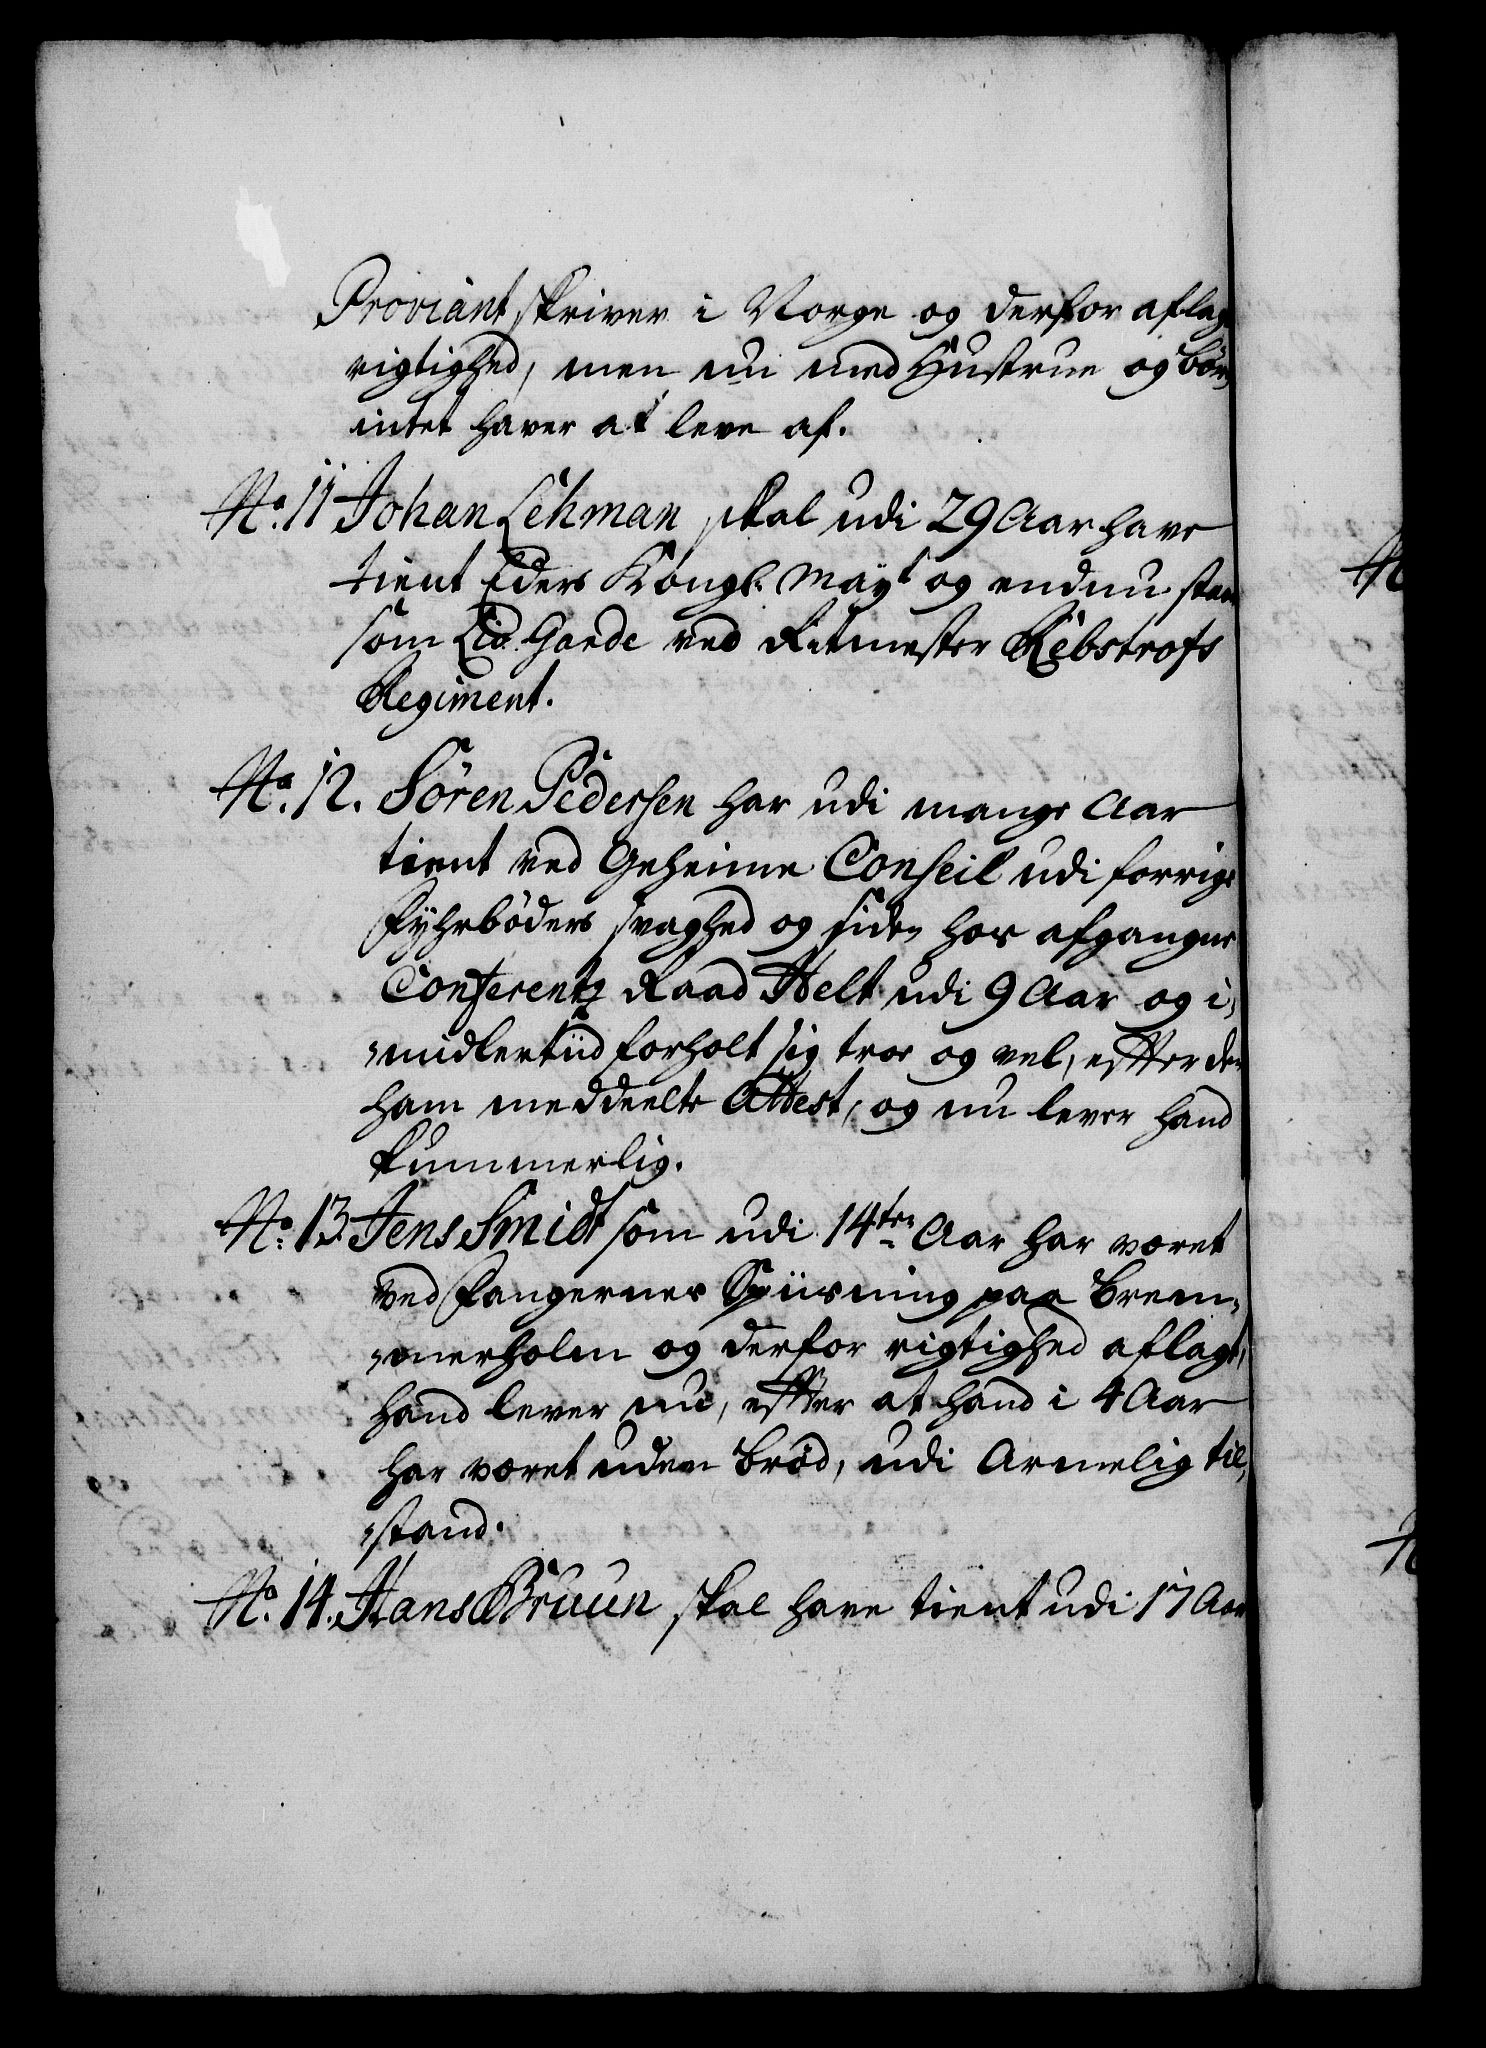 Proviantskriver i Norge og derfor aflagt
rigtighed, men nu med Hustrue og børn
intet haver at leve af.
No. 11 Johan Lehman skal udi 29 Aar have
tient Eders Kongl. Mayt og endnu staar
som Liv Garde ved Ritmester Rebstrofs
Regiment.
No. 12. Sören Pedersen har udi mange Aar
tient ved Geheime Conseil udi forrige
Fyhrbøders svaghed og siden hos afgangne
Conferentz Raad Helt udi 9 Aar og i,
,,midlertiid forholt sig troe og vel, effter den
ham meddeelte Attest, og nu lever hand
kummerlig.
No. 13 Jens Smidt som udi 14ten Aar har været
ved Fangernes Spiisning paa Brem,,
,,merholm og derfor rigtighed aflagt,
hand lever nu, effter at hand i 4 Aar
har været uden brød, udi Armelig til,,
,,stand.
No. 14. Hans Bruun skal have tient udi 17 Aar